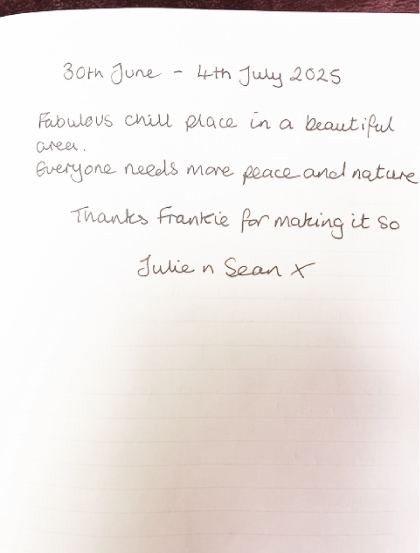 30th June - 4th July 2025
Fabulous chill place in a beautiful
area.
Everyone needs more peace and nature
Thanks Frankie for making it so
Julie n Sean x